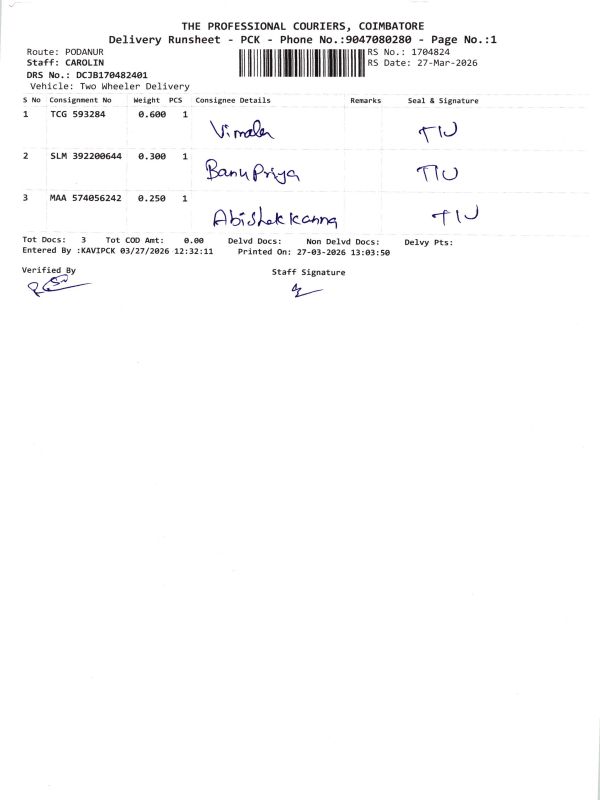 THE PROFESSIONAL COURIERS, COIMBATORE
Delivery Runsheet - PCK - Phone No.:9047080280 - Page No.:1
Route: PODANUR RS No.: 1704824
Staff: CAROLIN RS Date: 27-Mar-2026
DRS No.: DCJB170482401
Vehicle: Two Wheeler Delivery
S No Consignment No Weight PCS Consignee Details Remarks Seal & Signature
1 TCG 593284 0.600 1
Vimala
2 SLM 392200644 0.300 1
Banu Priya
3 MAA 574056242 0.250 1
Abishek Kanna
Tot Docs: 3 Tot COD Amt: 0.00 Delvd Docs: Non Delvd Docs: Delvy Pts:
Entered By :KAVIPCK 03/27/2026 12:32:11 Printed On: 27-03-2026 13:03:50
Verified By Staff Signature